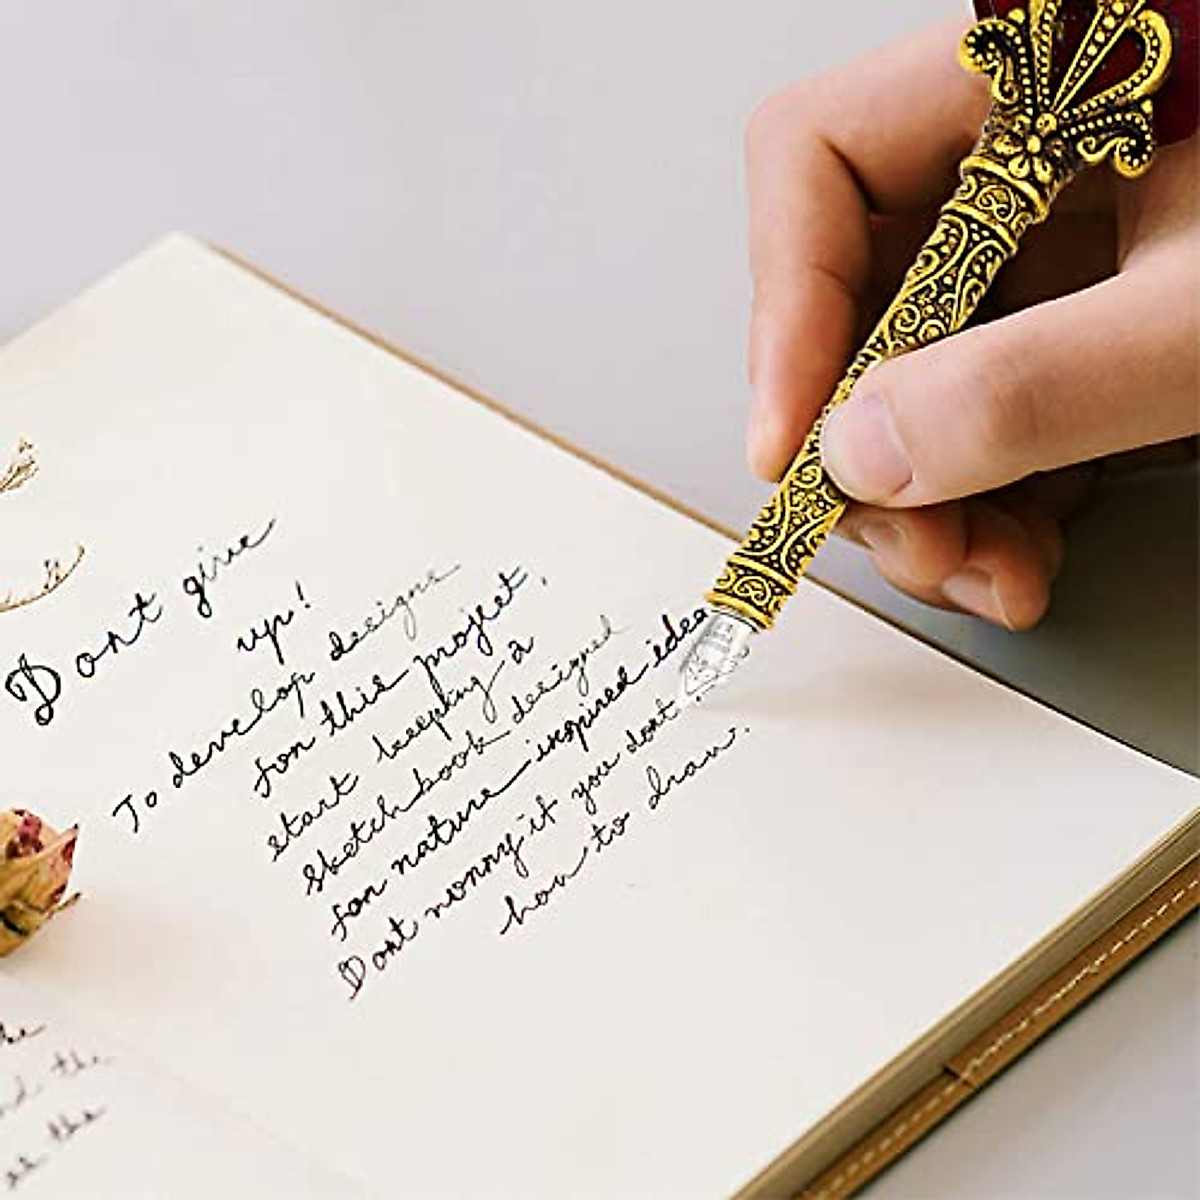 Dont give
up!
To develop designs
for this project,
start keeping a
sketchbook designed
for nature inspired idea
Dont worry if you dont
how to draw.
the
nd the
as the